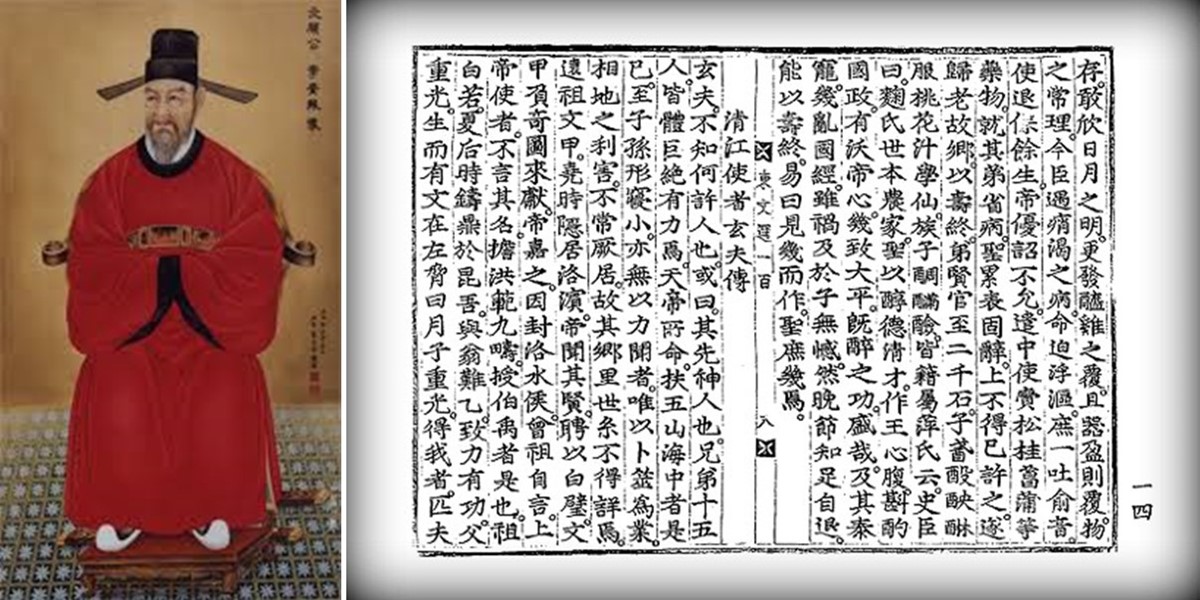 文順公 李奎報像
存。敢欣日月之明。更發醯雞之覆。且器盈則覆。物
之常理。今臣遇痟渴之病。命迫浮漚。庶一吐俞音。
使退保餘生。帝優詔不允。遣中使賫松桂菖蒲等
藥物。就其第省病。聖累表固辭。上不得已許之。遂
歸老故鄕。以壽終。弟賢官至二千石。子酘醂
服桃花汁學仙。族子醶。皆籍屬萍氏云。史臣
曰。麴氏世本農家。聖以醇德淸才。作王心腹。斟酌
國政。有沃帝心。幾致大平。旣醉之功。盛哉。及其泰
寵。幾亂國經。雖禍及於子無憾。然晚節知足自退。
能以壽終。易曰見幾而作。聖庶幾焉。
東文選一百 八
淸江使者玄夫傳
玄夫。不知何許人也。或曰。其先神人也。兄弟十五
人。皆體巨絶有力焉。天帝所命。扶五山海中者是
已。至子孫形寢小。亦無以力聞者。唯以卜筮爲業。
相地之利害。不常厥居。故其鄕里世系不得詳焉。
遠祖文甲。堯時隱居洛濱。帝聞其賢。聘以白璧。文
甲負奇圖來獻。帝嘉之。因封洛水侯。曾祖自言。上
帝使者。不言其名。擔洪範九疇。授伯禹者是也。祖
白若。夏后時鑄鼎於昆吾。與翁難乙。致力有功。父
重光。生而有文在左脅曰。月子重光。得我者。匹夫
一四